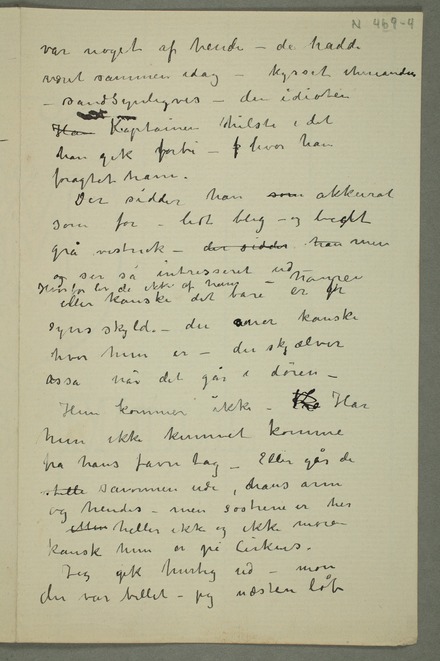 N 469-4
var noget af hende – de hadde
været sammen idag – kysset hinanden
– sandsynligvis – den idioten
Han Kaptainen hilste i det
han gik forbi – hvor han
foragtet ham.
Der sidder han som akkurat
som før – lidt bleg – og
grå vestvik – der sidder han men
og ser så intresseret ud –
Hvorfor ler de ikke af ham
eller kanske det bare er for
syns skyld – du aner kanske
hvor hun er – du skjælver
ossa når det går i døren –
Hun kommer ikke – Har
hun ikke kunnet komme
fra hans favn tag – Eller går de
sammen ude, hans arm
og hendes – men søstrene er hes
eller heller ikke og ikke moren
kansk hun er på Cirkus.
Jeg gik hurtig ud – mon
der var billet – jeg næsten løb